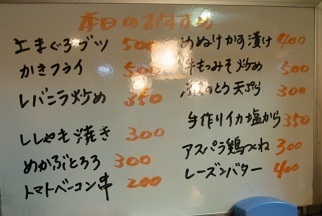 本日のおすすめ
エまぐろブツ 500
かきフライ 500
レバニラ炒め 350
ししゃも焼き 300
めかぶとろろ 300
トマトベーコン串 200
めぬけかす漬け 400
牛もつみそ炒め 500
ふきのとう天ぷら 300
手作りイカ塩から 350
アスパラ鶏つくね 300
レーズンバター 400